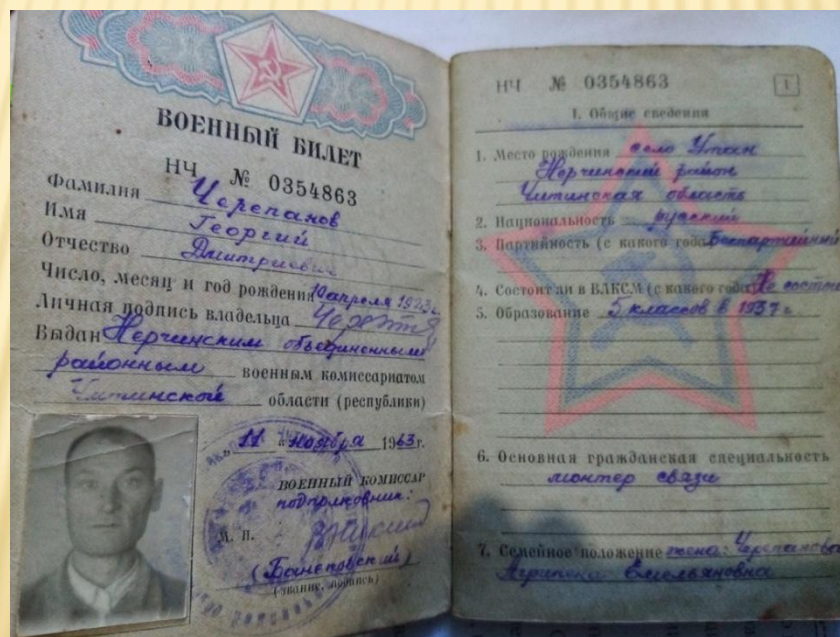 ВОЕННЫЙ БИЛЕТ
НЧ № 0354863
Фамилия Черепанов
Имя Георгий
Отчество Дмитриевич
Число, месяц и год рождения 10 апреля 1923 г.
Личная подпись владельца
Выдан Нерчинским объединенным
районным военным комиссариатом
Читинской области (республики)
"11" ноября 1963 г.
ВОЕННЫЙ КОМИССАР
подполковник:
М. П.
(звание, подпись)
НЧ № 0354863 1
I. Общие сведения
1. Место рождения село Утан
Нерчинский район
Читинская область
2. Национальность русский
3. Партийность (с какого года) Беспартийный
4. Состоит ли в ВЛКСМ (с какого года) Не состои
5. Образование 5 классов в 1937 г
6. Основная гражданская специальность
монтер связи
7. Семейное положение жена: Черепанова
Емельяновна